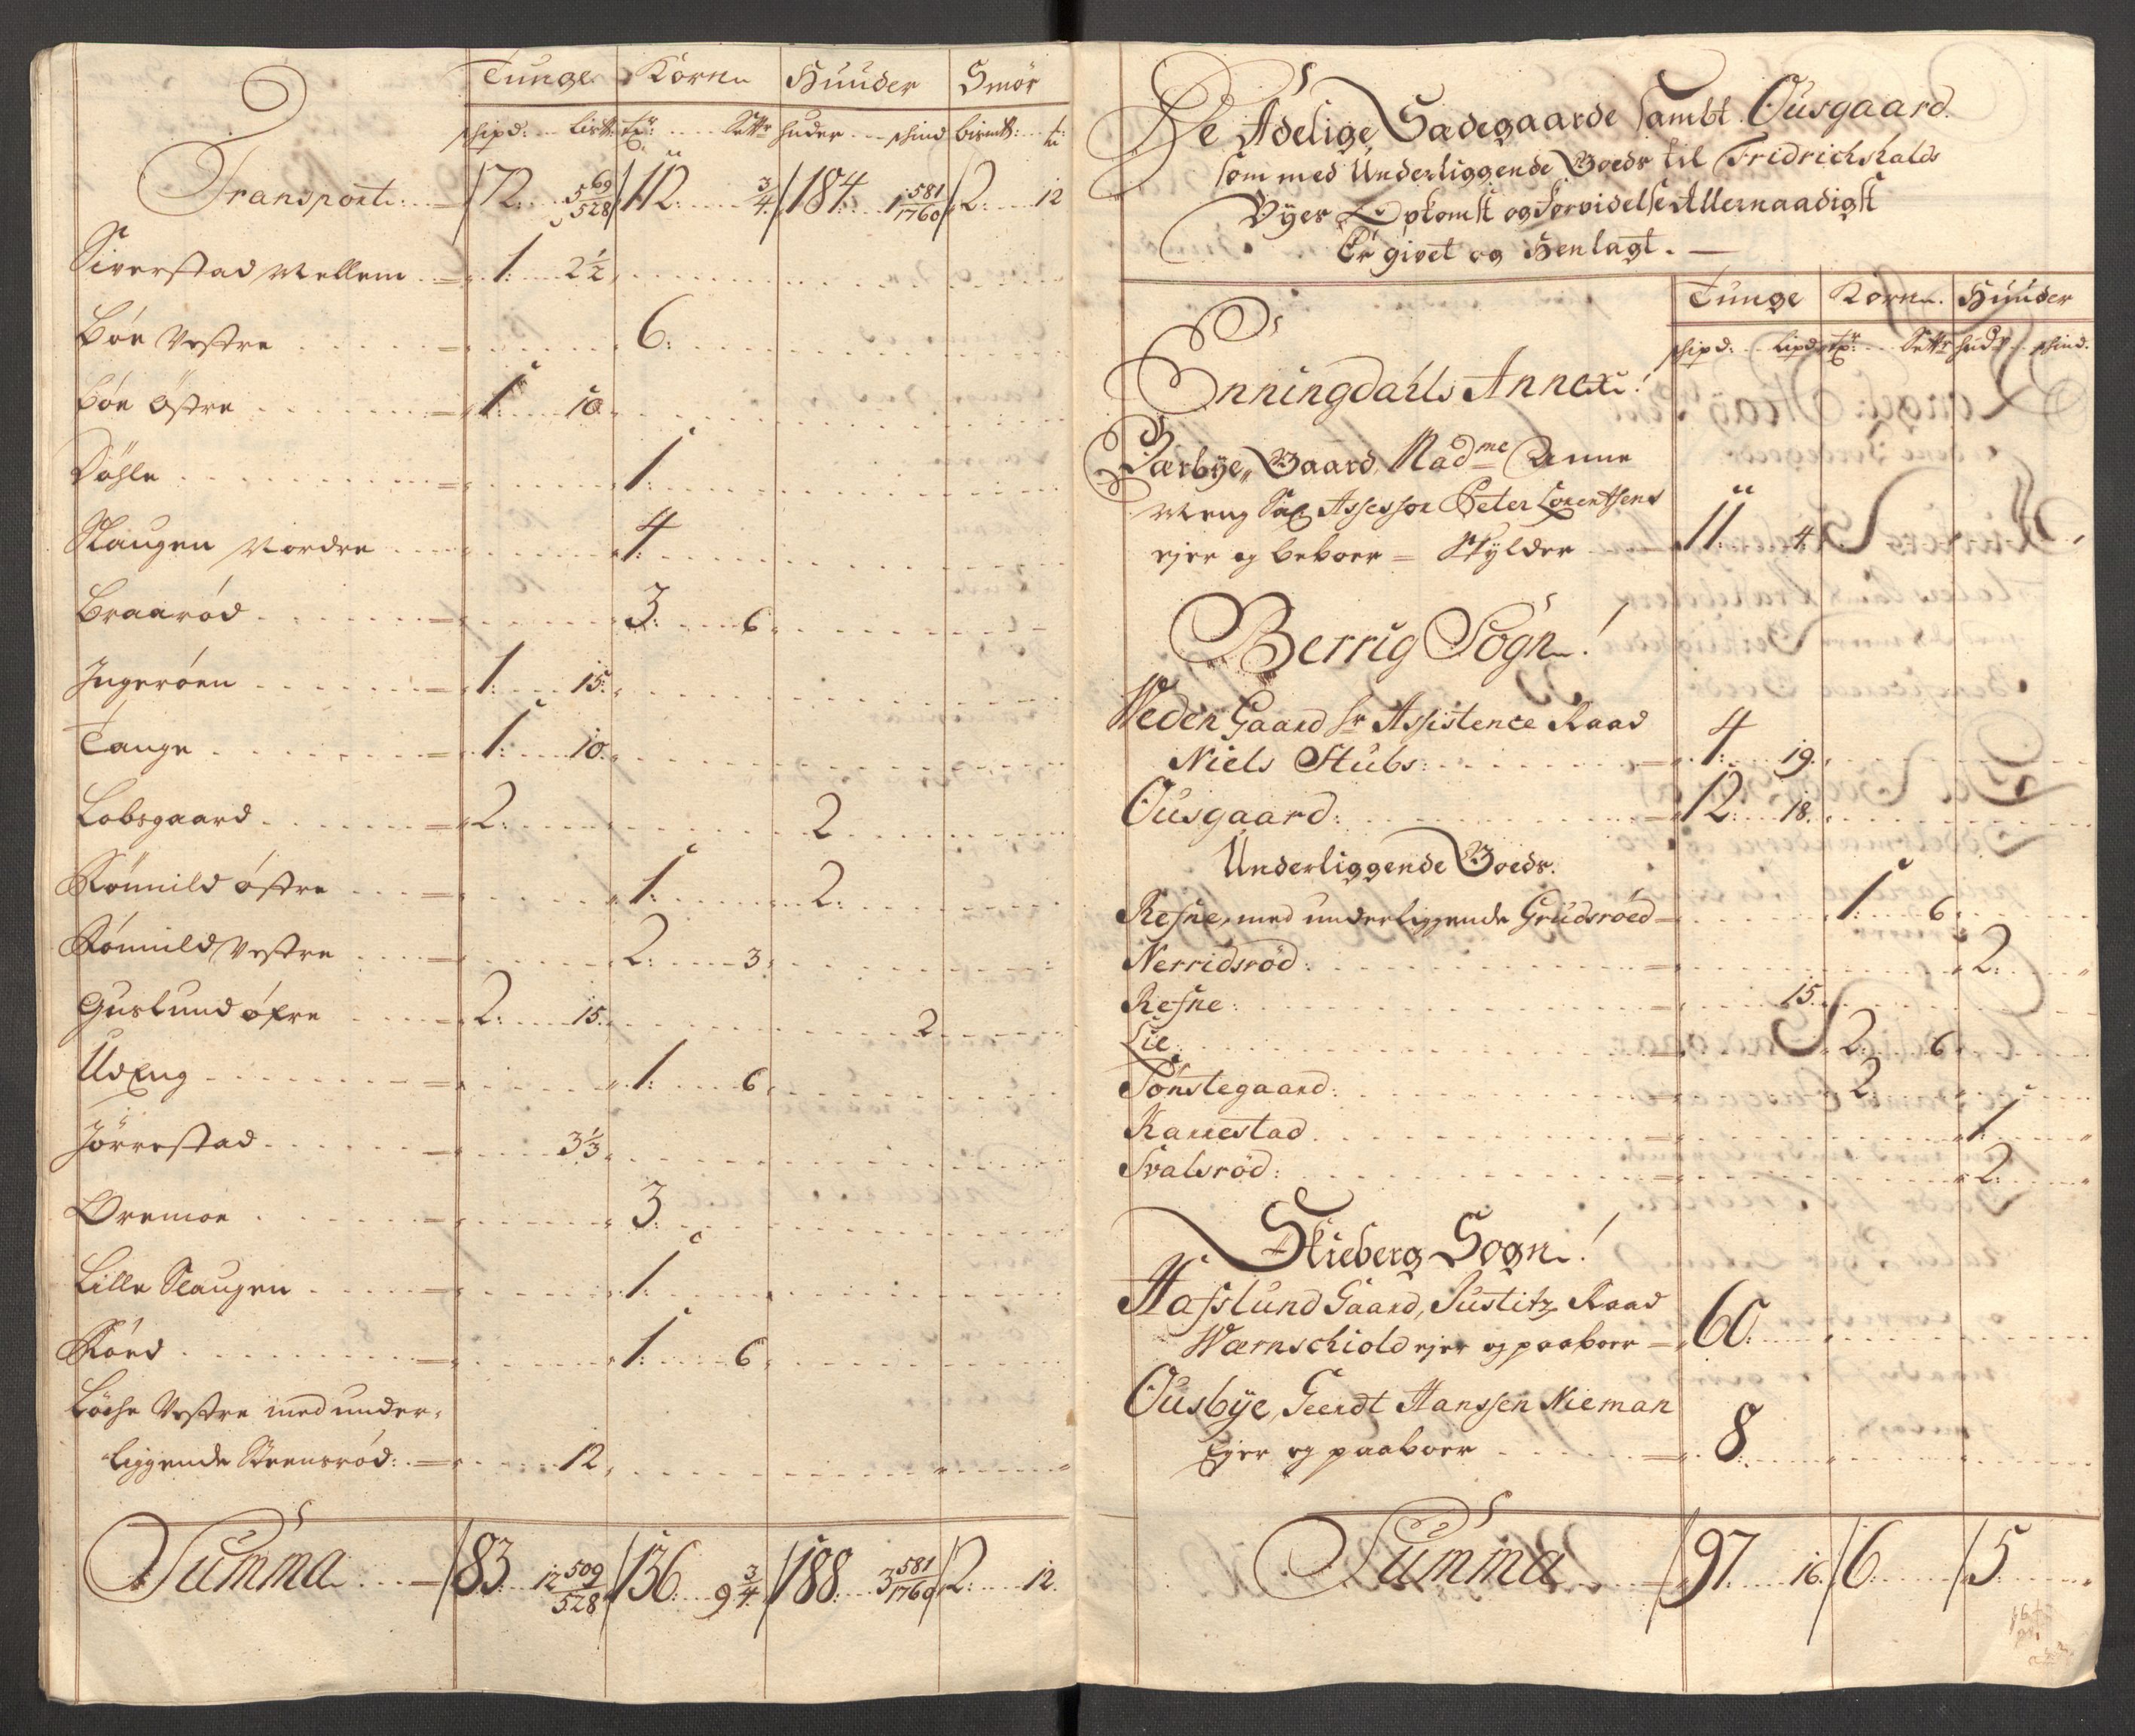 Tunge Korn Huuder Smör
schipd: Lisp: tr: Sett: huder schind bismk: lb
Transport: 72: 5 69/528 112: 3/4 184: 1 581/1760 2: 12
Siverstad Mellem 1: 2 1/2
Böe Vestre 6:
Böe Östre 1: 10
Döhle 1:
Slaugen Nordre 4:
Braaröd 3: 6
Ingeröen 1: 15:
Tange 1: 10:
Labsgaard 2: 2
Römmild östre 1: 2:
Römmild Vestre 2: 3
Guslund öfre 2: 15: 2
UdEng 1: 6
Jörrestad 3 1/3
Oremoe 3:
Lille Slaugen 1:
Röed 1: 6
Löche Vestre med under-
liggende Steensröd: 12
Summa 83: 12 509/528 136: 9 3/4 188: 3 581/1760 2: 12.
De Adelige Sædegaarde sambt Ousgaard.
som med Underliggende Goeds til Fridrichshalds
Byes Opkomst og Forvidelse Allernaadigst
Er givet og Henlagt.
Tunge Korn. Huuder
schipd: Lispd tr: Sett: hudr schind.
Enningdahls Annex:
Berbye, Gaard, Madme Anne
Meng Sal Assessor Peter Lorentsens
ejer og beboer = Skylder 11: 4
Berrig Sogn:
Weden Gaard hr Assistence Raad
Niels Stubs: 4: 19.
Ousgaard: 12: 18.
Underliggende Goeds:
Resne, med underliggende Grudsroed 1: 6
Nerridsröd: 2:
Resne: 15.
Lie: 2: 6
Tönstegaard: 2:
Karrestad 1:
Svalsröd: 2:
Skieberg Sogn:
Hafslund Gaard, Justitz Raad
Wærnschiold ejer og paaboer 60:
Ousbye, Geerdt Hanssen Nieman
Ejer og paaboer 8:
Summa 97: 16. 6: 5: